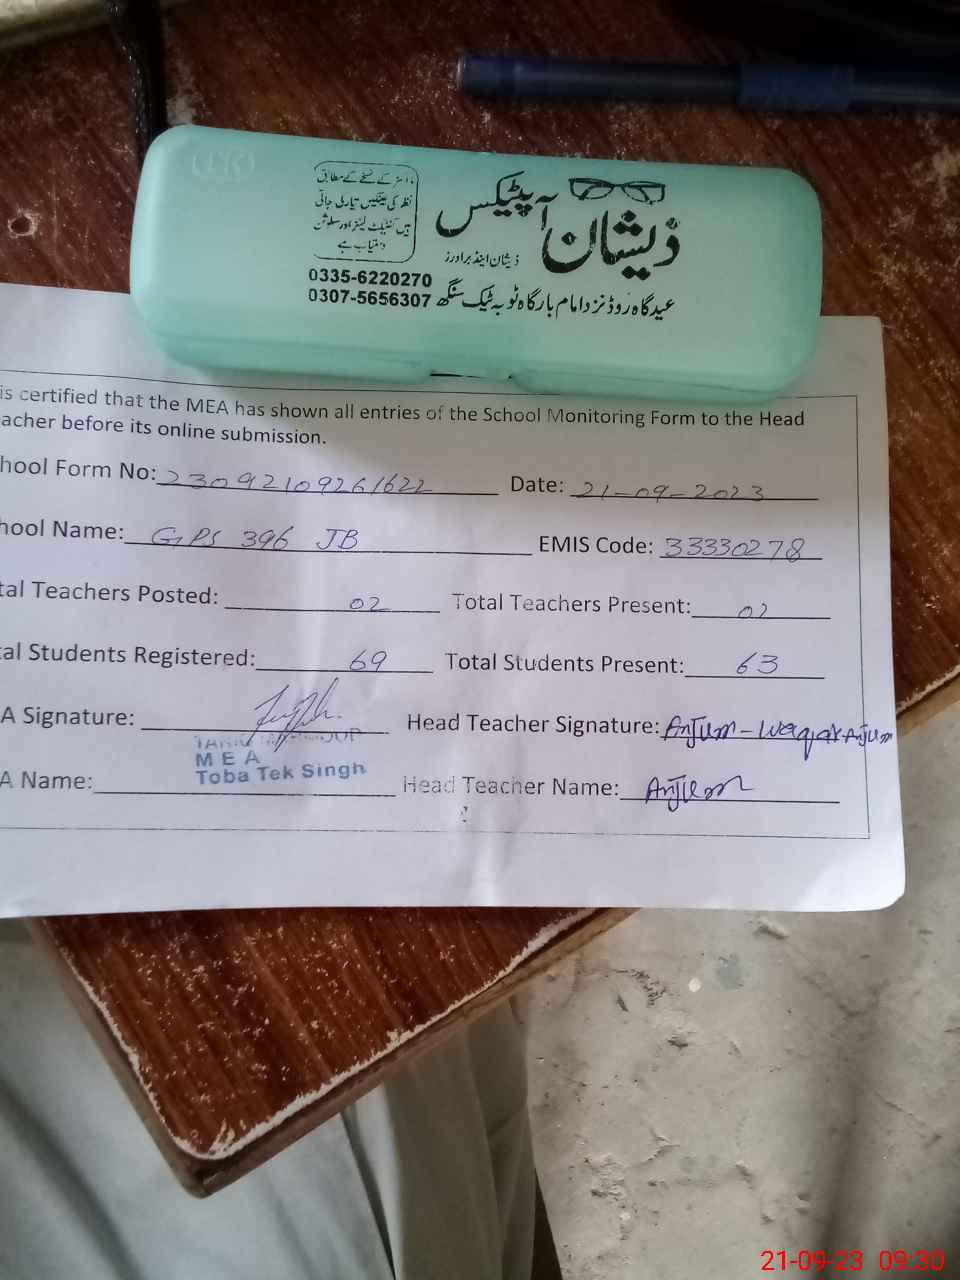 ذیشان آپٹیکس
ذیشان اینڈ برادرز
نظر کی عینکیں تیار کی جاتی
ہیں کنٹیکٹ لینز اور سلوشن
دستیاب ہے
0335-6220270
0307-5656307 عیدگاہ روڈ نزد امام بارگاہ ٹوبہ ٹیک سنگھ
is certified that the MEA has shown all entries of the School Monitoring Form to the Head
acher before its online submission.
hool Form No: 23092109261622 Date: 21-09-2023
hool Name: GPS 396 JB EMIS Code: 33330278
tal Teachers Posted: 02 Total Teachers Present: 02
tal Students Registered: 69 Total Students Present: 63
A Signature: Head Teacher Signature: Anjum-Waqar Anjum
MEA
Toba Tek Singh
A Name: Head Teacher Name: Anjum
21-09-23 09:30